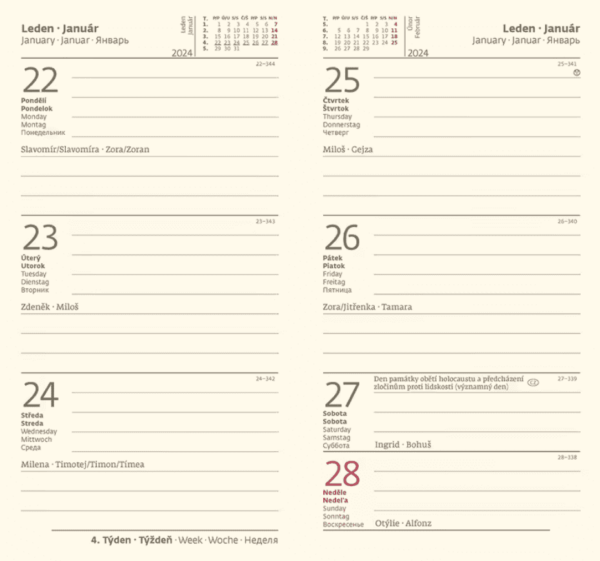 Leden · Január
January · Januar · Январь
2024
Leden
Január
T. MP ÚÚ SS ČŠ PP SS NN
1. 1 2 3 4 5 6 7
2. 8 9 10 11 12 13 14
3. 15 16 17 18 19 20 21
4. 22 23 24 25 26 27 28
5. 29 30 31
22–344
22
Pondělí
Pondelok
Monday
Montag
Понедельник
Slavomír/Slavomíra · Zora/Zoran
23–343
23
Úterý
Utorok
Tuesday
Dienstag
Вторник
Zdeněk · Miloš
24–342
24
Středa
Streda
Wednesday
Mittwoch
Среда
Milena · Timotej/Timon/Tímea
4. Týden · Týždeň · Week · Woche · Неделя
T.
5. 1 2 3 4
6. 5 6 7 8 9 10 11
7. 12 13 14 15 16 17 18
8. 19 20 21 22 23 24 25
9. 26 27 28 29
Únor
Február
2024
Leden · Január
January · Januar · Январь
25–341
25
Čtvrtek
Štvrtok
Thursday
Donnerstag
Четверг
Miloš · Gejza
26–340
26
Pátek
Piatok
Friday
Freitag
Пятница
Zora/Jitřenka · Tamara
Den památky obětí holocaustu a předcházení
zločinům proti lidskosti (významný den)
CZ
27–339
27
Sobota
Sobota
Saturday
Samstag
Суббота
Ingrid · Bohuš
28–338
28
Neděle
Nedeľa
Sunday
Sonntag
Воскресенье
Otýlie · Alfonz